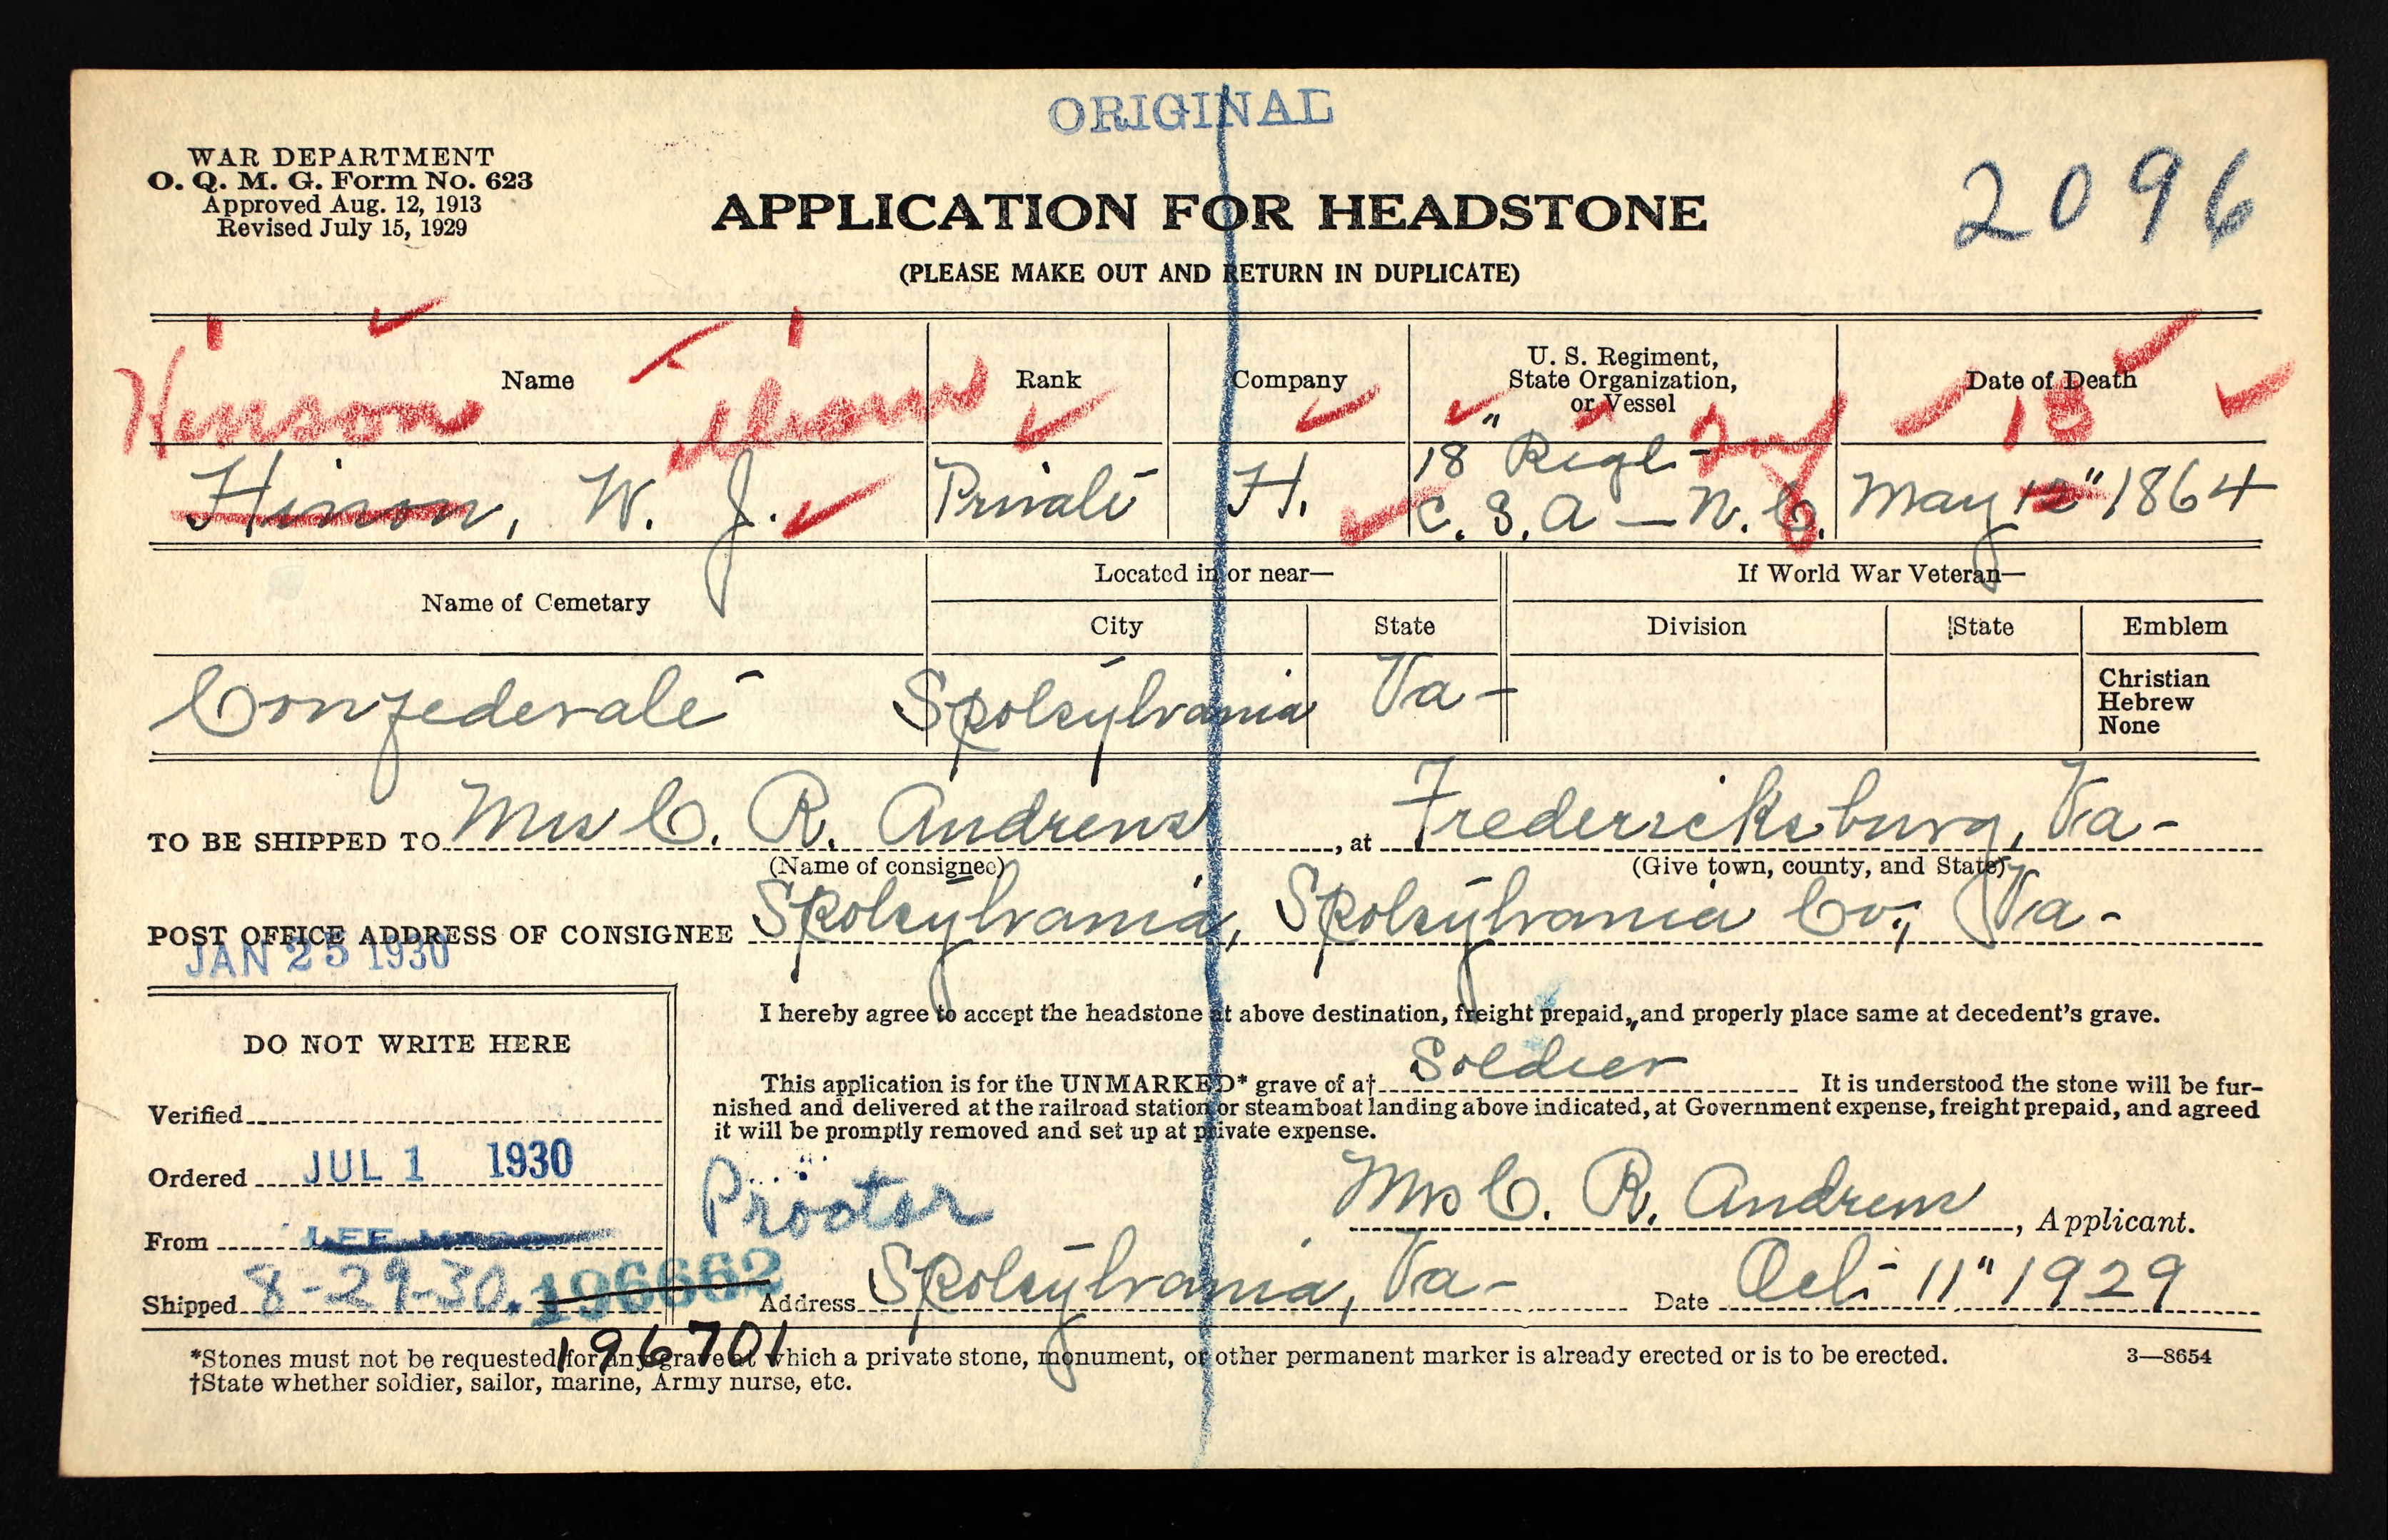 ORIGINAL
WAR DEPARTMENT
O. Q. M. G. Form No. 623
Approved Aug. 12, 1913
Revised July 15, 1929
2096
APPLICATION FOR HEADSTONE
(PLEASE MAKE OUT AND RETURN IN DUPLICATE)
Name Rank Company U. S. Regiment, State Organization, or Vessel Date of Death
Hinson illiam Inf 18
Hinson, W. J. Private H. 18" Regt- C. S. A - N. C. May 12" 1864
Name of Cemetary Located in or near— If World War Veteran—
City State Division State Emblem
Confederate Spotsylvania Va - Christian
Hebrew
None
TO BE SHIPPED TO Mrs C. R. Andrews, at Fredericksburg, Va-
(Name of consignee) (Give town, county, and State)
POST OFFICE ADDRESS OF CONSIGNEE Spotsylvania, Spotsylvania Co., Va-
JAN 25 1930
I hereby agree to accept the headstone at above destination, freight prepaid, and properly place same at decedent's grave.
DO NOT WRITE HERE
This application is for the UNMARKED* grave of a† Soldier It is understood the stone will be fur-
nished and delivered at the railroad station or steamboat landing above indicated, at Government expense, freight prepaid, and agreed
it will be promptly removed and set up at private expense.
Verified
Ordered JUL 1 1930
Proctor
Mrs C. R. Andrews, Applicant.
From LEE
Shipped 8-29-30. 196662
Address Spotsylvania, Va- Date Oct- 11" 1929
196701
*Stones must not be requested for any grave at which a private stone, monument, or other permanent marker is already erected or is to be erected. 3—8654
†State whether soldier, sailor, marine, Army nurse, etc.